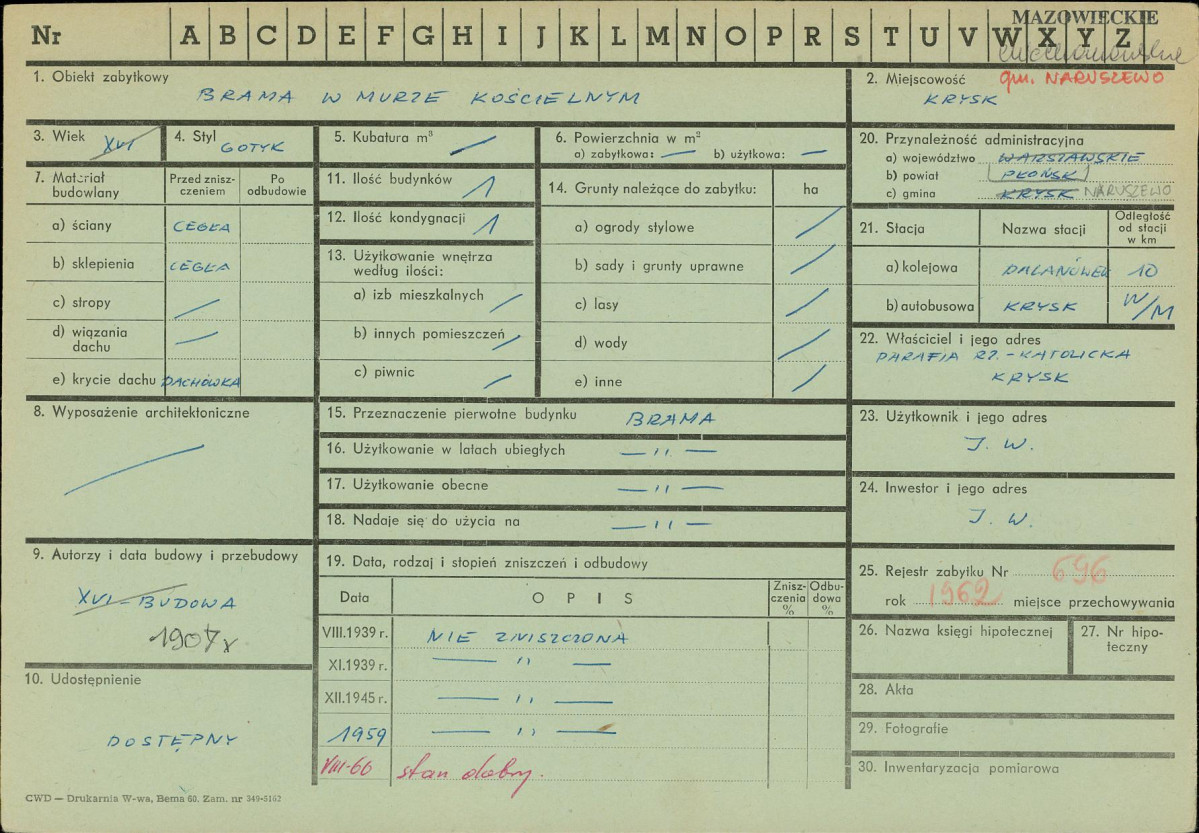 MAZOWIECKIE
Nr A B C D E F G H I J K L M N O P R S T U V W X Y Z
ciechanowskie
1. Obiekt zabytkowy
BRAMA W MURZE KOŚCIELNYM
2. Miejscowość gm. NARUSZEWO
KRYSK
3. Wiek XVI
4. Styl GOTYK
5. Kubatura m³ —
6. Powierzchnia w m²
a) zabytkowa: — b) użytkowa: —
20. Przynależność administracyjna
a) województwo WARSZAWSKIE
b) powiat PŁOŃSK
c) gmina KRYSK NARUSZEWO
7. Materiał budowlany
Przed zniszczeniem
Po odbudowie
a) ściany CEGŁA
b) sklepienia CEGŁA
c) stropy —
d) wiązania dachu —
e) krycie dachu DACHÓWKA
11. Ilość budynków 1
12. Ilość kondygnacji 1
13. Użytkowanie wnętrza
według ilości:
a) izb mieszkalnych —
b) innych pomieszczeń —
c) piwnic —
14. Grunty należące do zabytku: ha
a) ogrody stylowe —
b) sady i grunty uprawne —
c) lasy —
d) wody —
e) inne —
21. Stacja Nazwa stacji Odległość od stacji w km
a) kolejowa DALANÓWEK 10
b) autobusowa KRYSK W/M
22. Właściciel i jego adres
PARAFIA RZ.-KATOLICKA
KRYSK
8. Wyposażenie architektoniczne
—
15. Przeznaczenie pierwotne budynku BRAMA
16. Użytkowanie w latach ubiegłych — " —
17. Użytkowanie obecne — " —
18. Nadaje się do użycia na — " —
23. Użytkownik i jego adres
J. W.
24. Inwestor i jego adres
J. W.
9. Autorzy i data budowy i przebudowy
XVI – BUDOWA
1907 r
10. Udostępnienie
DOSTĘPNY
19. Data, rodzaj i stopień zniszczeń i odbudowy
Data OPIS Zniszczenia % Odbudowa %
VIII.1939 r. NIE ZNISZCZONA
XI.1939 r. — " —
XII.1945 r. — " —
1959 — " —
VIII-66 stan dobry.
25. Rejestr zabytku Nr 696
rok 1962 miejsce przechowywania
26. Nazwa księgi hipotecznej
27. Nr hipoteczny
28. Akta
29. Fotografie
30. Inwentaryzacja pomiarowa
CWD — Drukarnia W-wa, Bema 60. Zam. nr 349-5162